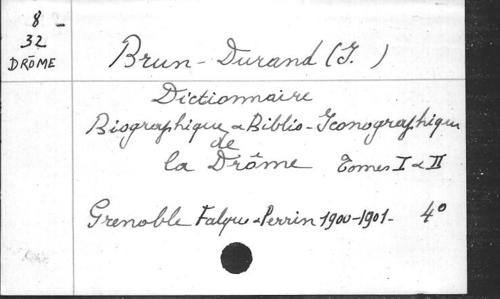 8 -
32
DRÔME
Brun-Durand (J. )
Dictionnaire
Biographique & Biblio-Iconographique
de
la Drôme Tomes I & II
Grenoble Falque & Perrin 1900-1901- 4°